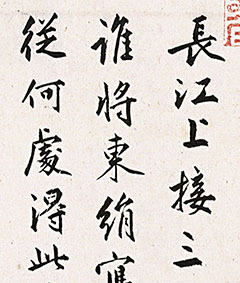 長江上接三
誰將東絹寫
從何處得此